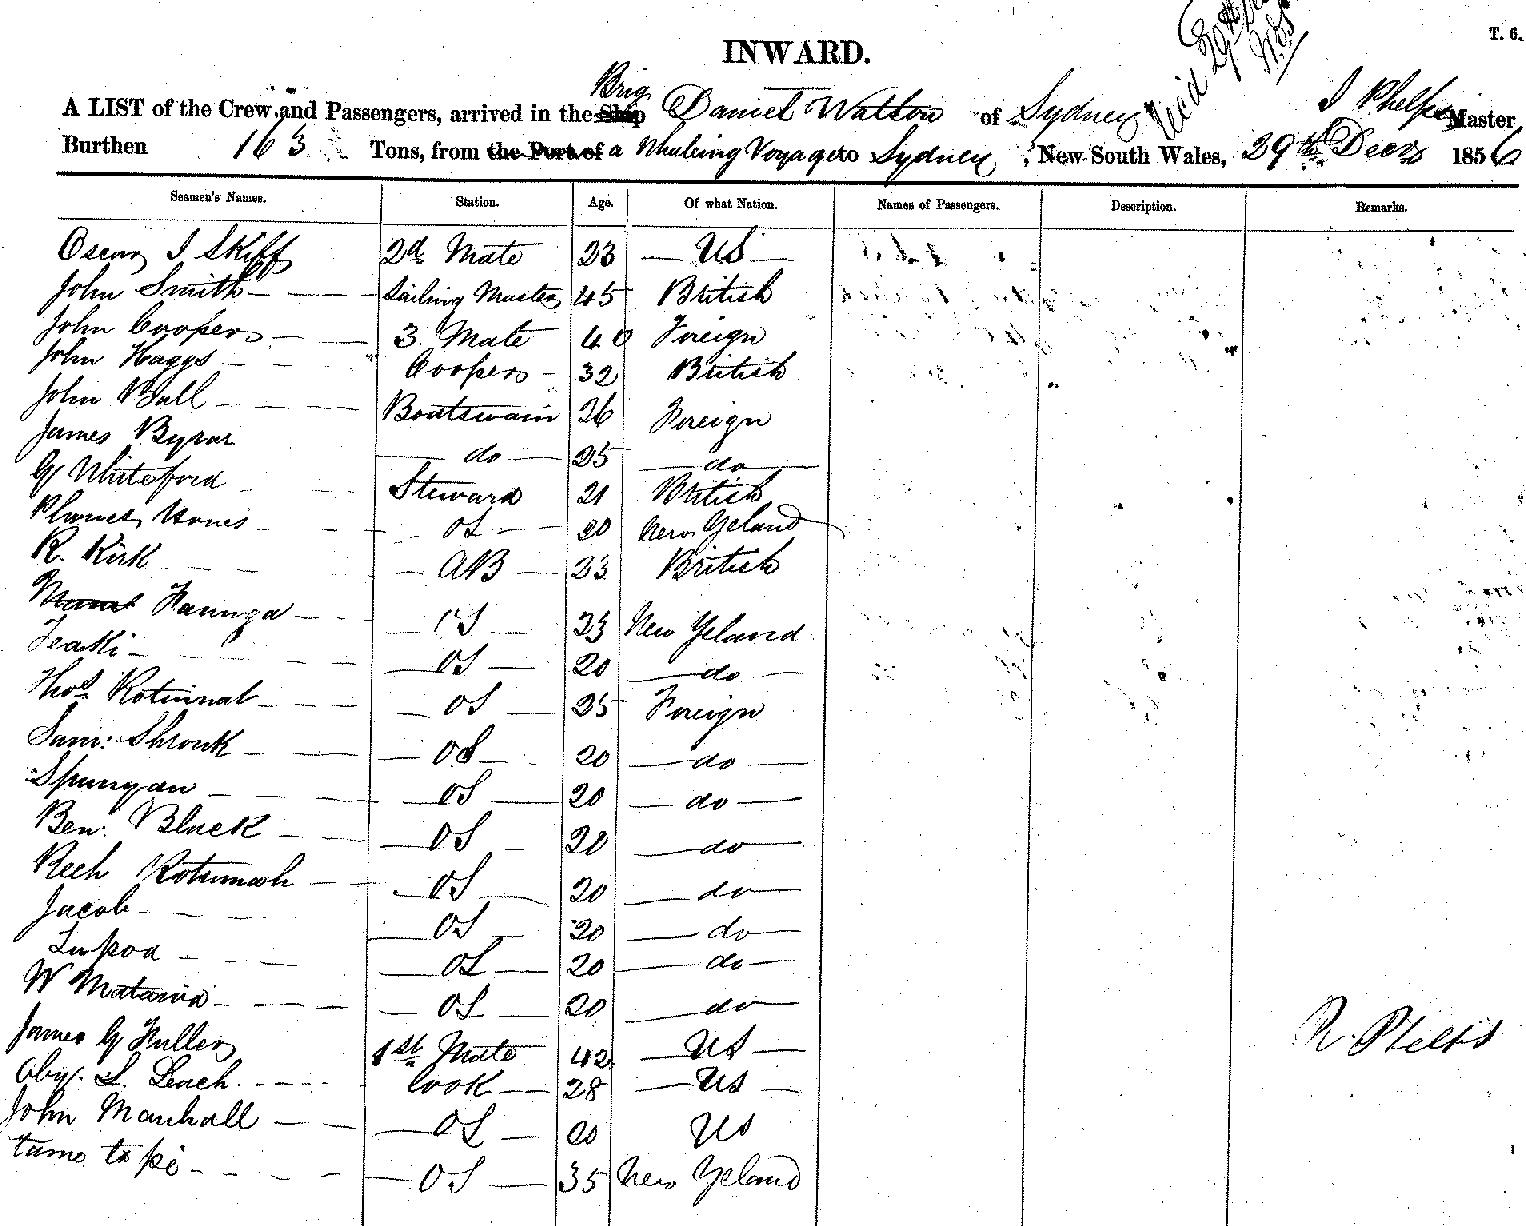 T. 6.
INWARD.
Brig
A LIST of the Crew and Passengers, arrived in the Ship Daniel Watson of Sydney J Phelps Master
Burthen 163 Tons, from the Port of a Whaleing Voyage to Sydney, New South Wales, 29th Decr 1856
Seamen's Names. Station. Age. Of what Nation. Names of Passengers. Description. Remarks.
Oscar J Skiff 2d Mate 23 US
John Smith Sailing Master 45 British
John Cooper 3 Mate 40 Foreign
John Haggs Cooper 32 British
John Ball Boatswain 26 Foreign
James Byrar do 25 do
G Whiteford Steward 21 British
OS 20 New Zeland
R. Kirk AB 23 British
OS 23 New Zeland
Teaki OS 20 do
Thos Rotumah OS 25 Foreign
Sam: Shronk OS 20 do
Spunyan OS 20 do
Ben: Black OS 20 do
Rech Rotumah OS 20 do
Jacob OS 20 do
Tupoa OS 20 do
W Matavia OS 20 do
James G Fuller 1st Mate 42 US
L. Leach Cook 28 US
John Marshall OS 20 US
OS 35 New Zeland